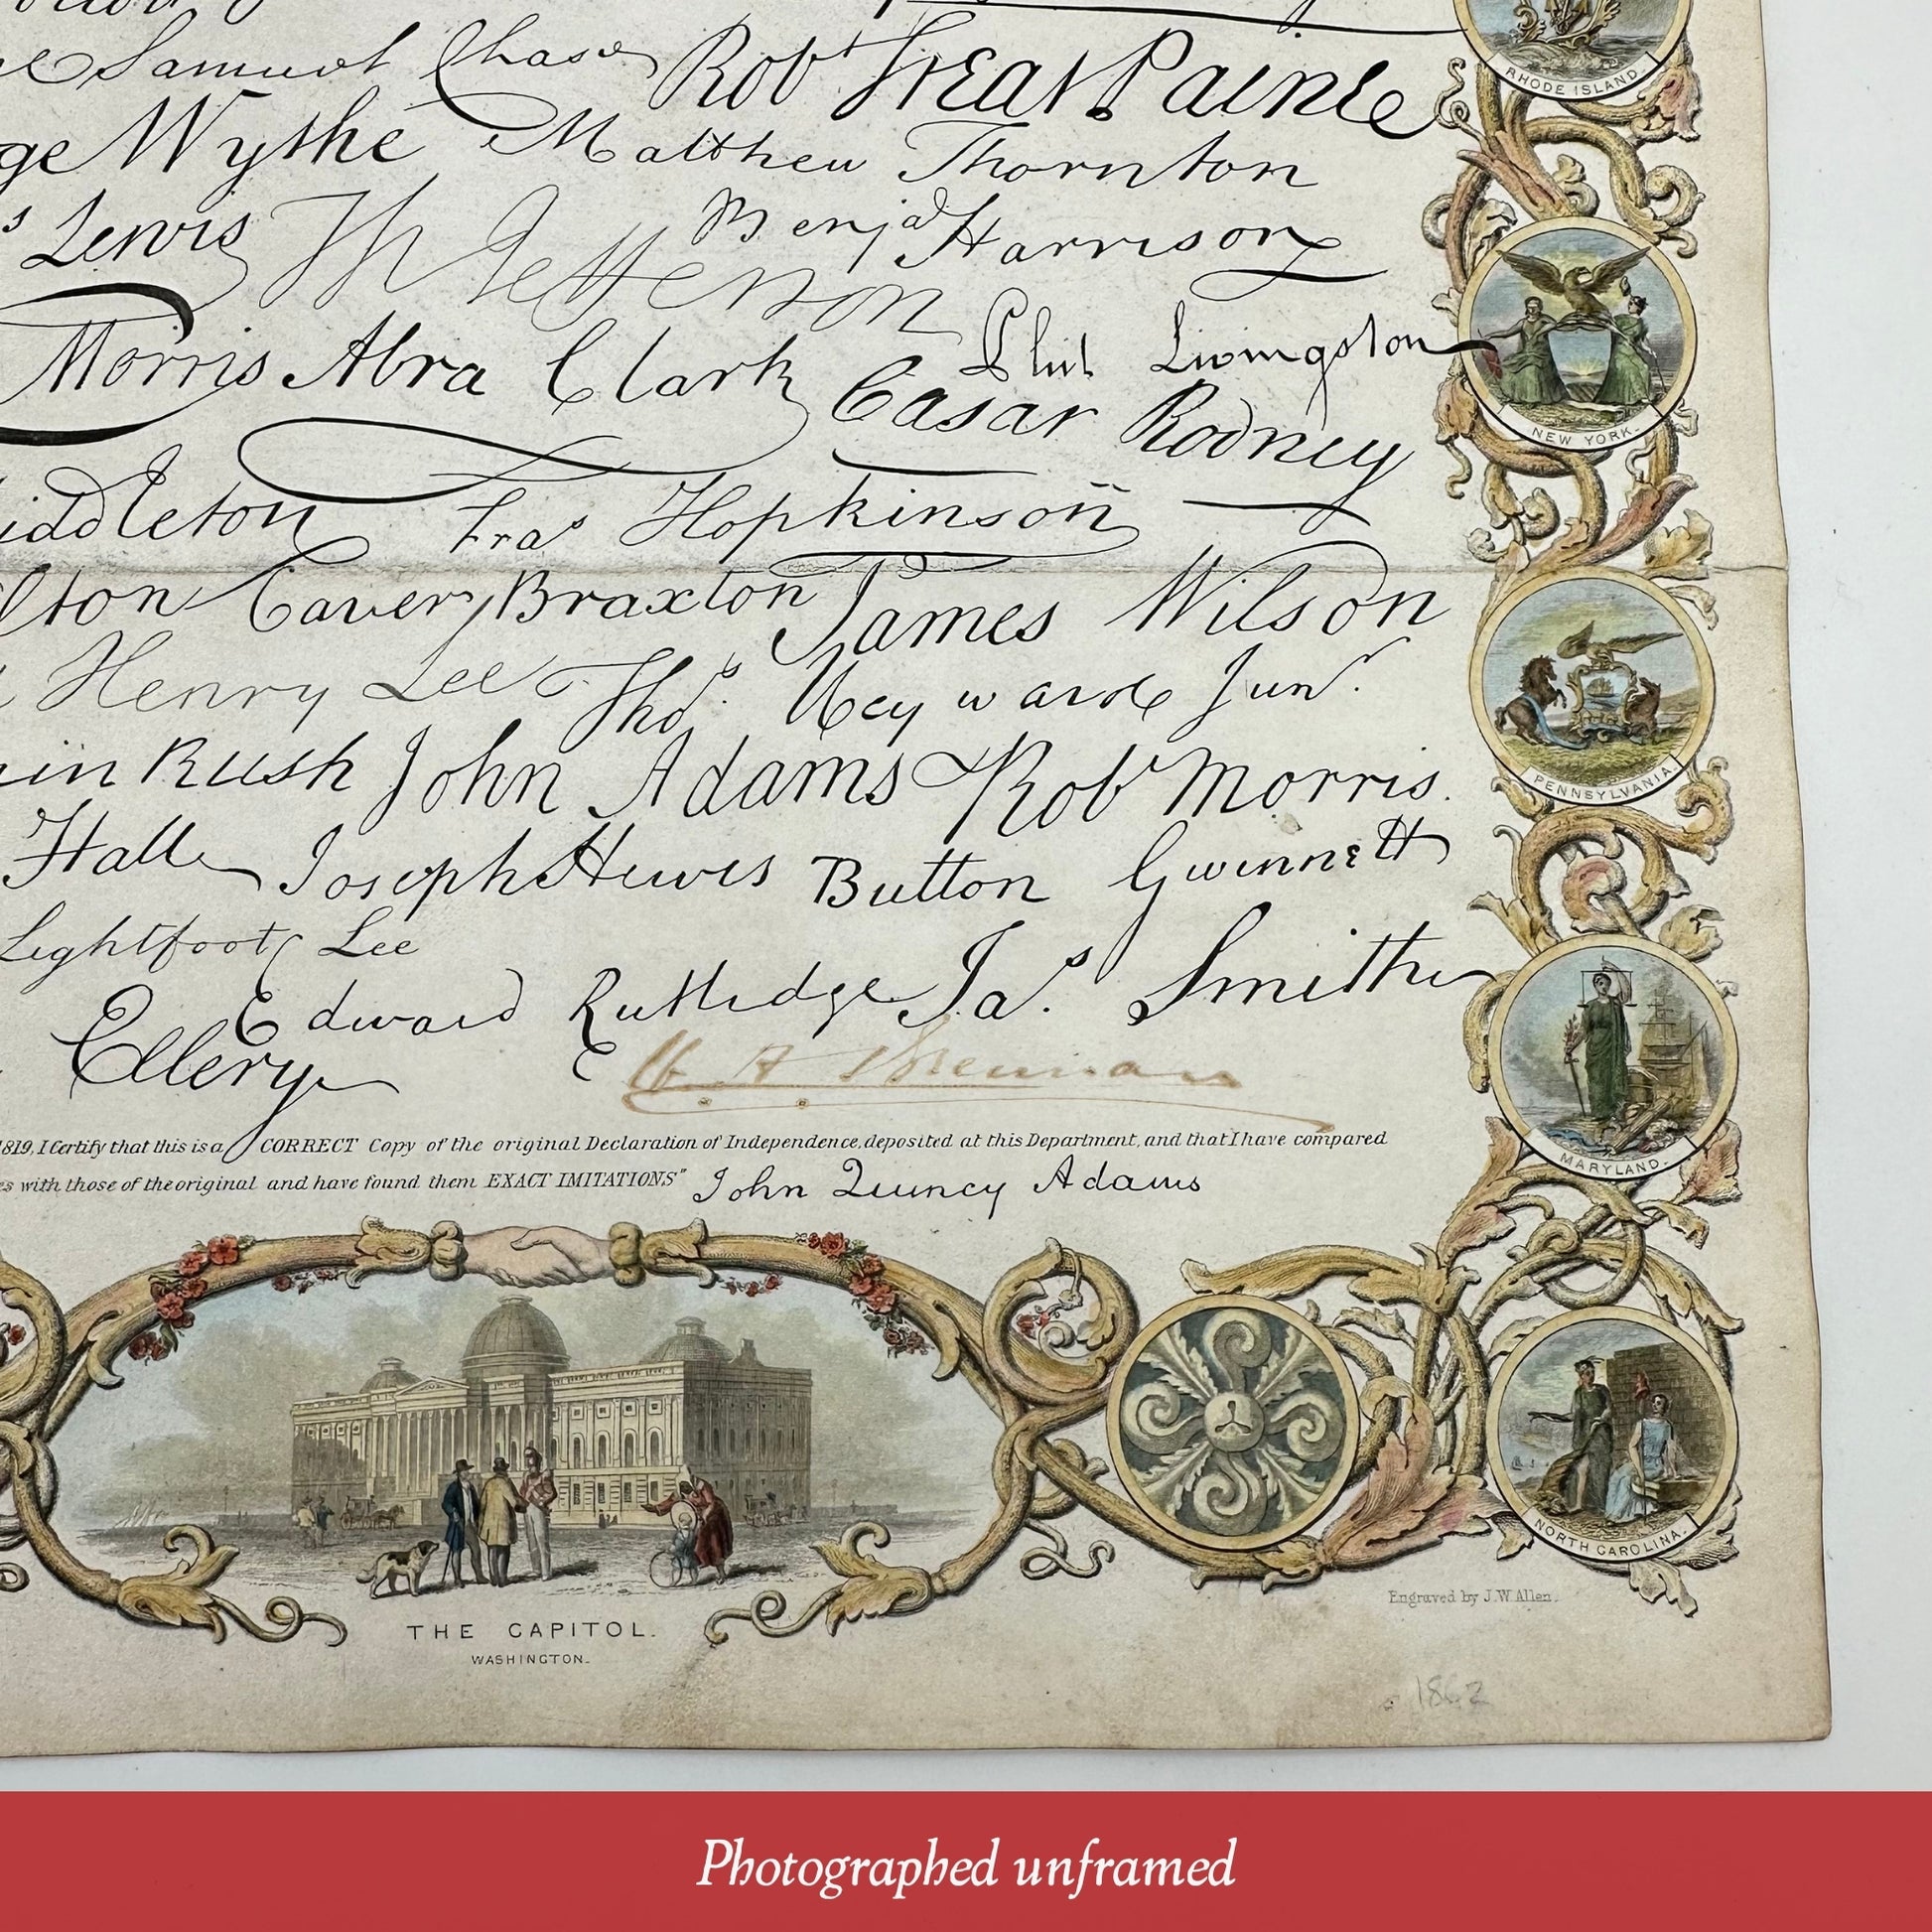 Samuel Chase Robt Treat Paine
RHODE ISLAND.
ge Wythe Matthew Thornton
s Lewis Th Jefferson Benja Harrison
Morris Abra Clark Phil Livingston
NEW YORK.
Cæsar Rodney
iddleton Fras Hopkinson
lton Carter Braxton James Wilson
Henry Lee Thos. Heyward Junr.
PENNSYLVANIA.
min Rush John Adams Robt Morris.
Hall Joseph Hewes Button Gwinnett
Lightfoot Lee
Edward Rutledge Jas. Smith
Ellery
1819, I Certify that this is a CORRECT Copy of the original Declaration of Independence, deposited at this Department, and that I have compared
MARYLAND.
es with those of the original and have found them EXACT IMITATIONS" John Quincy Adams
NORTH CAROLINA.
Engraved by J.W. Allen.
THE CAPITOL.
WASHINGTON.
1862
Photographed unframed